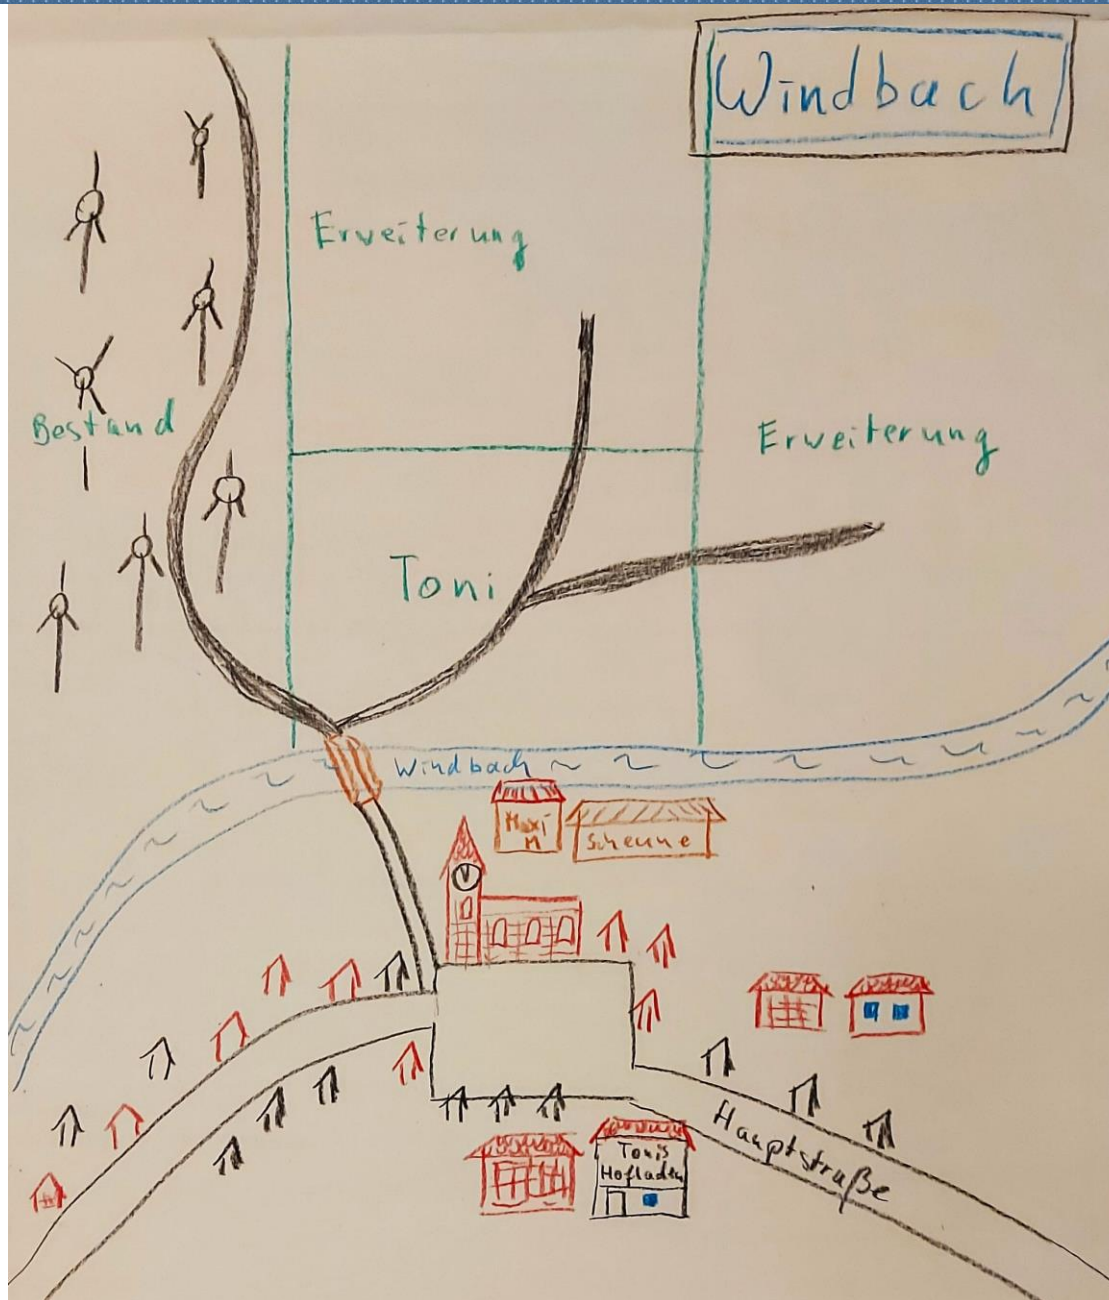 Windbach
Erweiterung
Bestand
Erweiterung
Toni
Windbach
Maxi
M
Scheune
Tonis
Hofladen
Hauptstraße